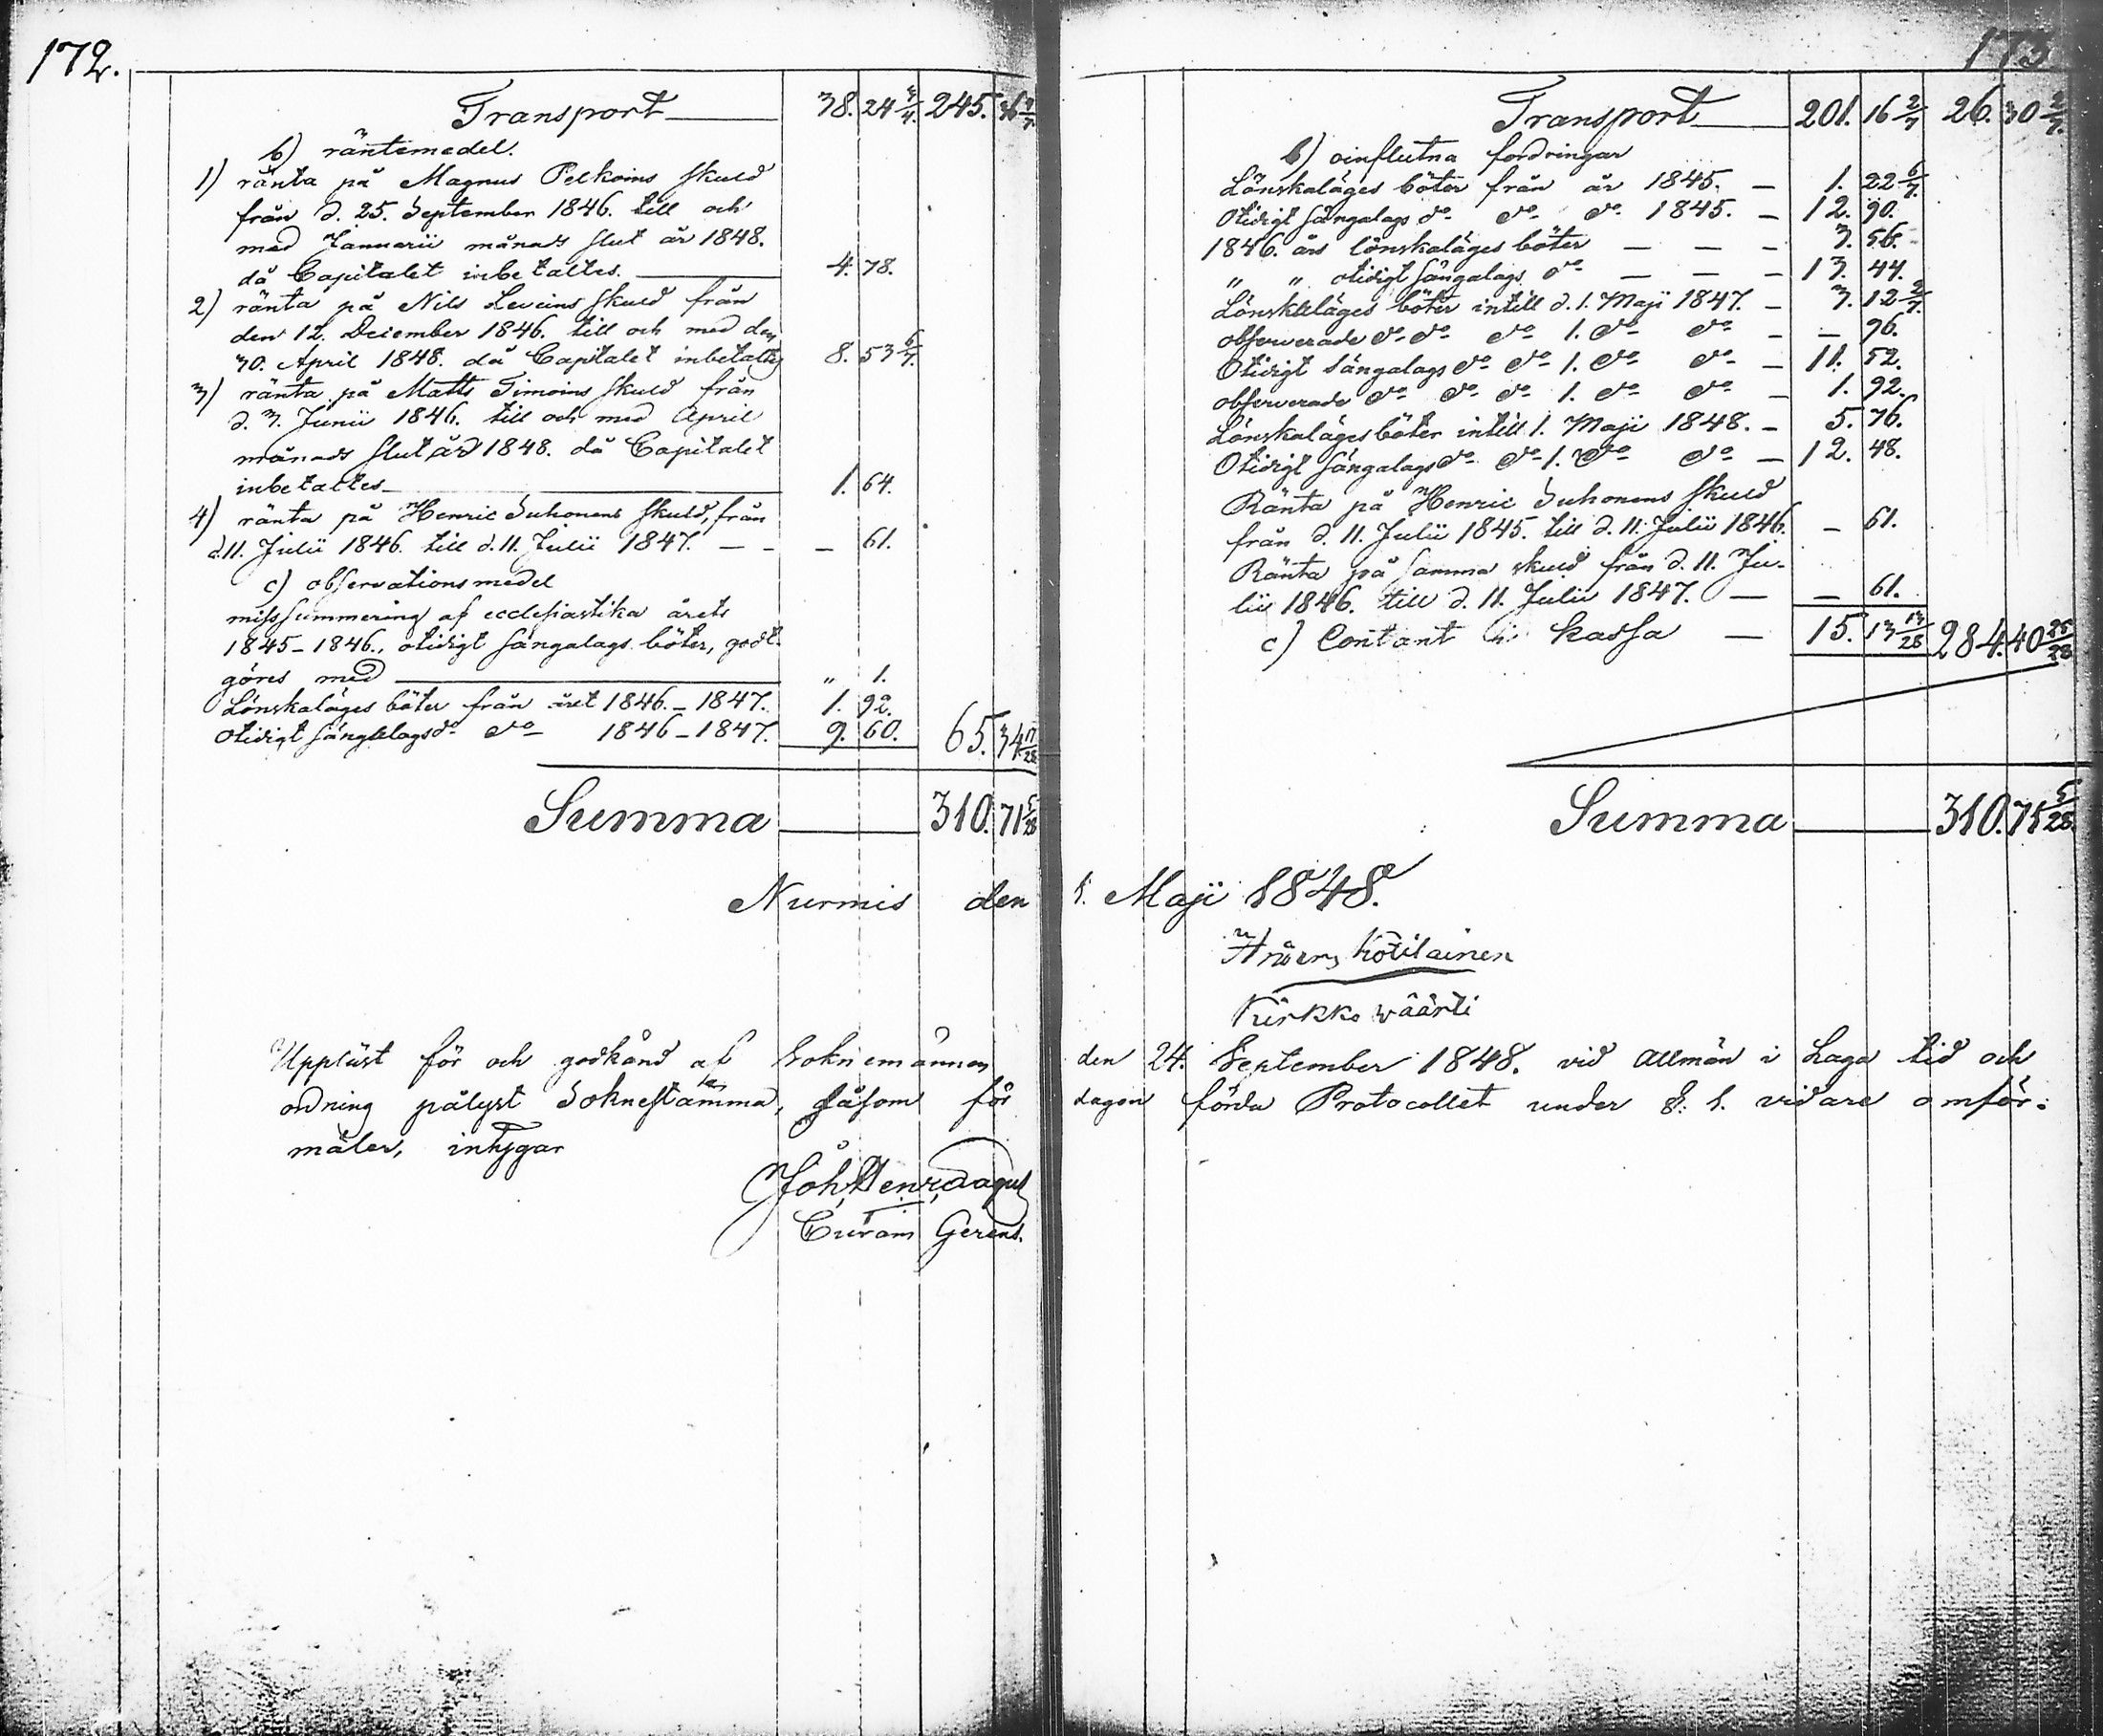 172.
Transport 38. 24 3/4. 245. 36 4/7.
b) räntemedel.
1) ränta på Magnus Pelkoins skuld
från d. 25. September 1846. till och
med Januarii månads slut år 1848.
då Capitalet inbetaltes. 4. 78.
2) ränta på Nils Leveins skuld från
den 12. December 1846. till och med den
30. April 1848. då Capitalet inbetaltes 8. 53 6/7.
3) ränta på Matts Timoins skuld från
d. 3. Junii 1846. till och med April
månads slut år 1848. då Capitalet
inbetaltes 1. 64.
4) ränta på Henric Suhonens skuld, från
d. 11. Julii 1846. till d. 11. Julii 1847. — - — 61.
c) observationsmedel
missummering af ecclesiastika årets
1845-1846., otidigt sängalags böter, godt-
göres med „ 1.
Lönskaläges böter från året 1846.-1847. 1. 92.
otidigt sängelags do do 1846-1847. 9. 60. 65. 34 17/28.
Summa 310. 71 5/28
Nurmis den
Uppläst för och godkänd af Soknemännen
ordning pålyst Soknestämma, såsom för
mäler, intygar
Joh, Henr,
Curam Gerens.
173
Transport 201. 16 2/7 26. 30 2/7.
b) oinflutna fordringar
Lönskaläges böter från år 1845. — 1. 22 6/7.
Otidigt sängalags do do do 1845. — 12. 90.
1846. års lönskaläges böter — — — 3. 56.
„ „ otidigt sängalags do — — — 13. 44.
Lönskaläges böter intill d. 1. Maji 1847. — 3. 12 2/7.
observerade do do do 1. do do — — 96.
Otidigt sängalags do do 1. do do — 11. 52.
observerade do do do 1. do do — 1. 92.
Lönskaläges böter intill 1. Maji 1848. — 5. 76.
Otidigt sängalags do do 1. do do — 12. 48.
Ränta på Henric Suhonens skuld
från d. 11. Julii 1845. till d. 11. Julii 1846. — 61.
Ränta på samma skuld från d. 11. Ju-
lii 1846. till d. 11. Julii 1847. — — 61.
c) Contant i kassa — 15. 13 13/28 284. 40 25/28
Summa 310. 71 5/28.
1. Maji 1848.
Anders Kotilainen
Kirkko wäärti
den 24. September 1848. vid allmän i Laga tid och
dagen förda Protocollet under §: 1. vidare omför-